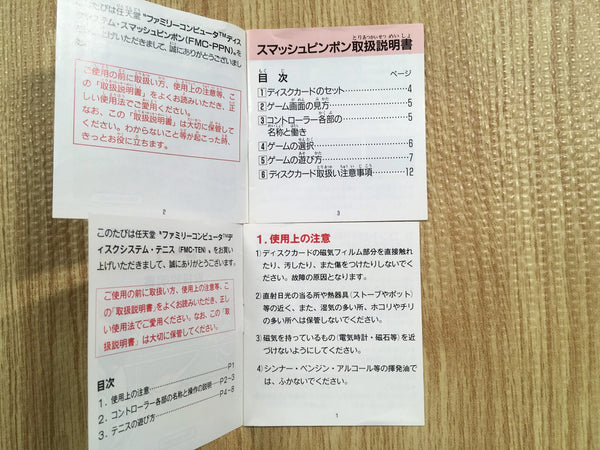 このたびは任天堂 “ファミリーコンピュータ™ディ
スクシステム・スマッシュピンポン(FMC-PPN)„を
上げいただきまして、誠にありがとうございま
ご使用の前に取扱い方、使用上の注意等、こ
の「取扱説明書」をよくお読みいただき、正
しい使用法でご愛用ください。
なお、この「取扱説明書」は大切に保管して
ください。わからないこと等が起こった時、
きっとお役に立ちます。
2
スマッシュピンポン取扱説明書
目次
ページ
1 ディスクカードのセット……………4
2 ゲーム画面の見方……………5
3 コントローラー各部の……………5
名称と働き
4 ゲームの選択……………6
5 ゲームの遊び方……………7
6 ディスクカード取扱い注意事項………12
3
このたびは任天堂 “ファミリーコンピュータ™デ
ィスクシステム・テニス(FMC-TEN)„をお買い
上げいただきまして、誠にありがとうございます。
ご使用の前に取扱い方、使用上の注意等、こ
の「取扱説明書」をよくお読みいただき、正し
い使用法でご愛用ください。なお、この「取
扱説明書」は大切に保管してください。
目次
1. 使用上の注意……………P1
2. コントローラー各部の名称と操作の説明…P2~3
3. テニスの遊び方……………P4~8
1. 使用上の注意
1)ディスクカードの磁気フィルム部分を直接触れ
たり、汚したり、また傷をつけたりしないでく
ださい。故障の原因となります。
2)直射日光の当る所や熱器具(ストーブやポット)
等の近く、また、湿気の多い所、ホコリやチリ
の多い所へは保管しないでください。
3)磁気を持っているもの(電気時計・磁石等)を近
づけないようにしてください。
4)シンナー・ベンジン・アルコール等の揮発油で
は、ふかないでください。
1